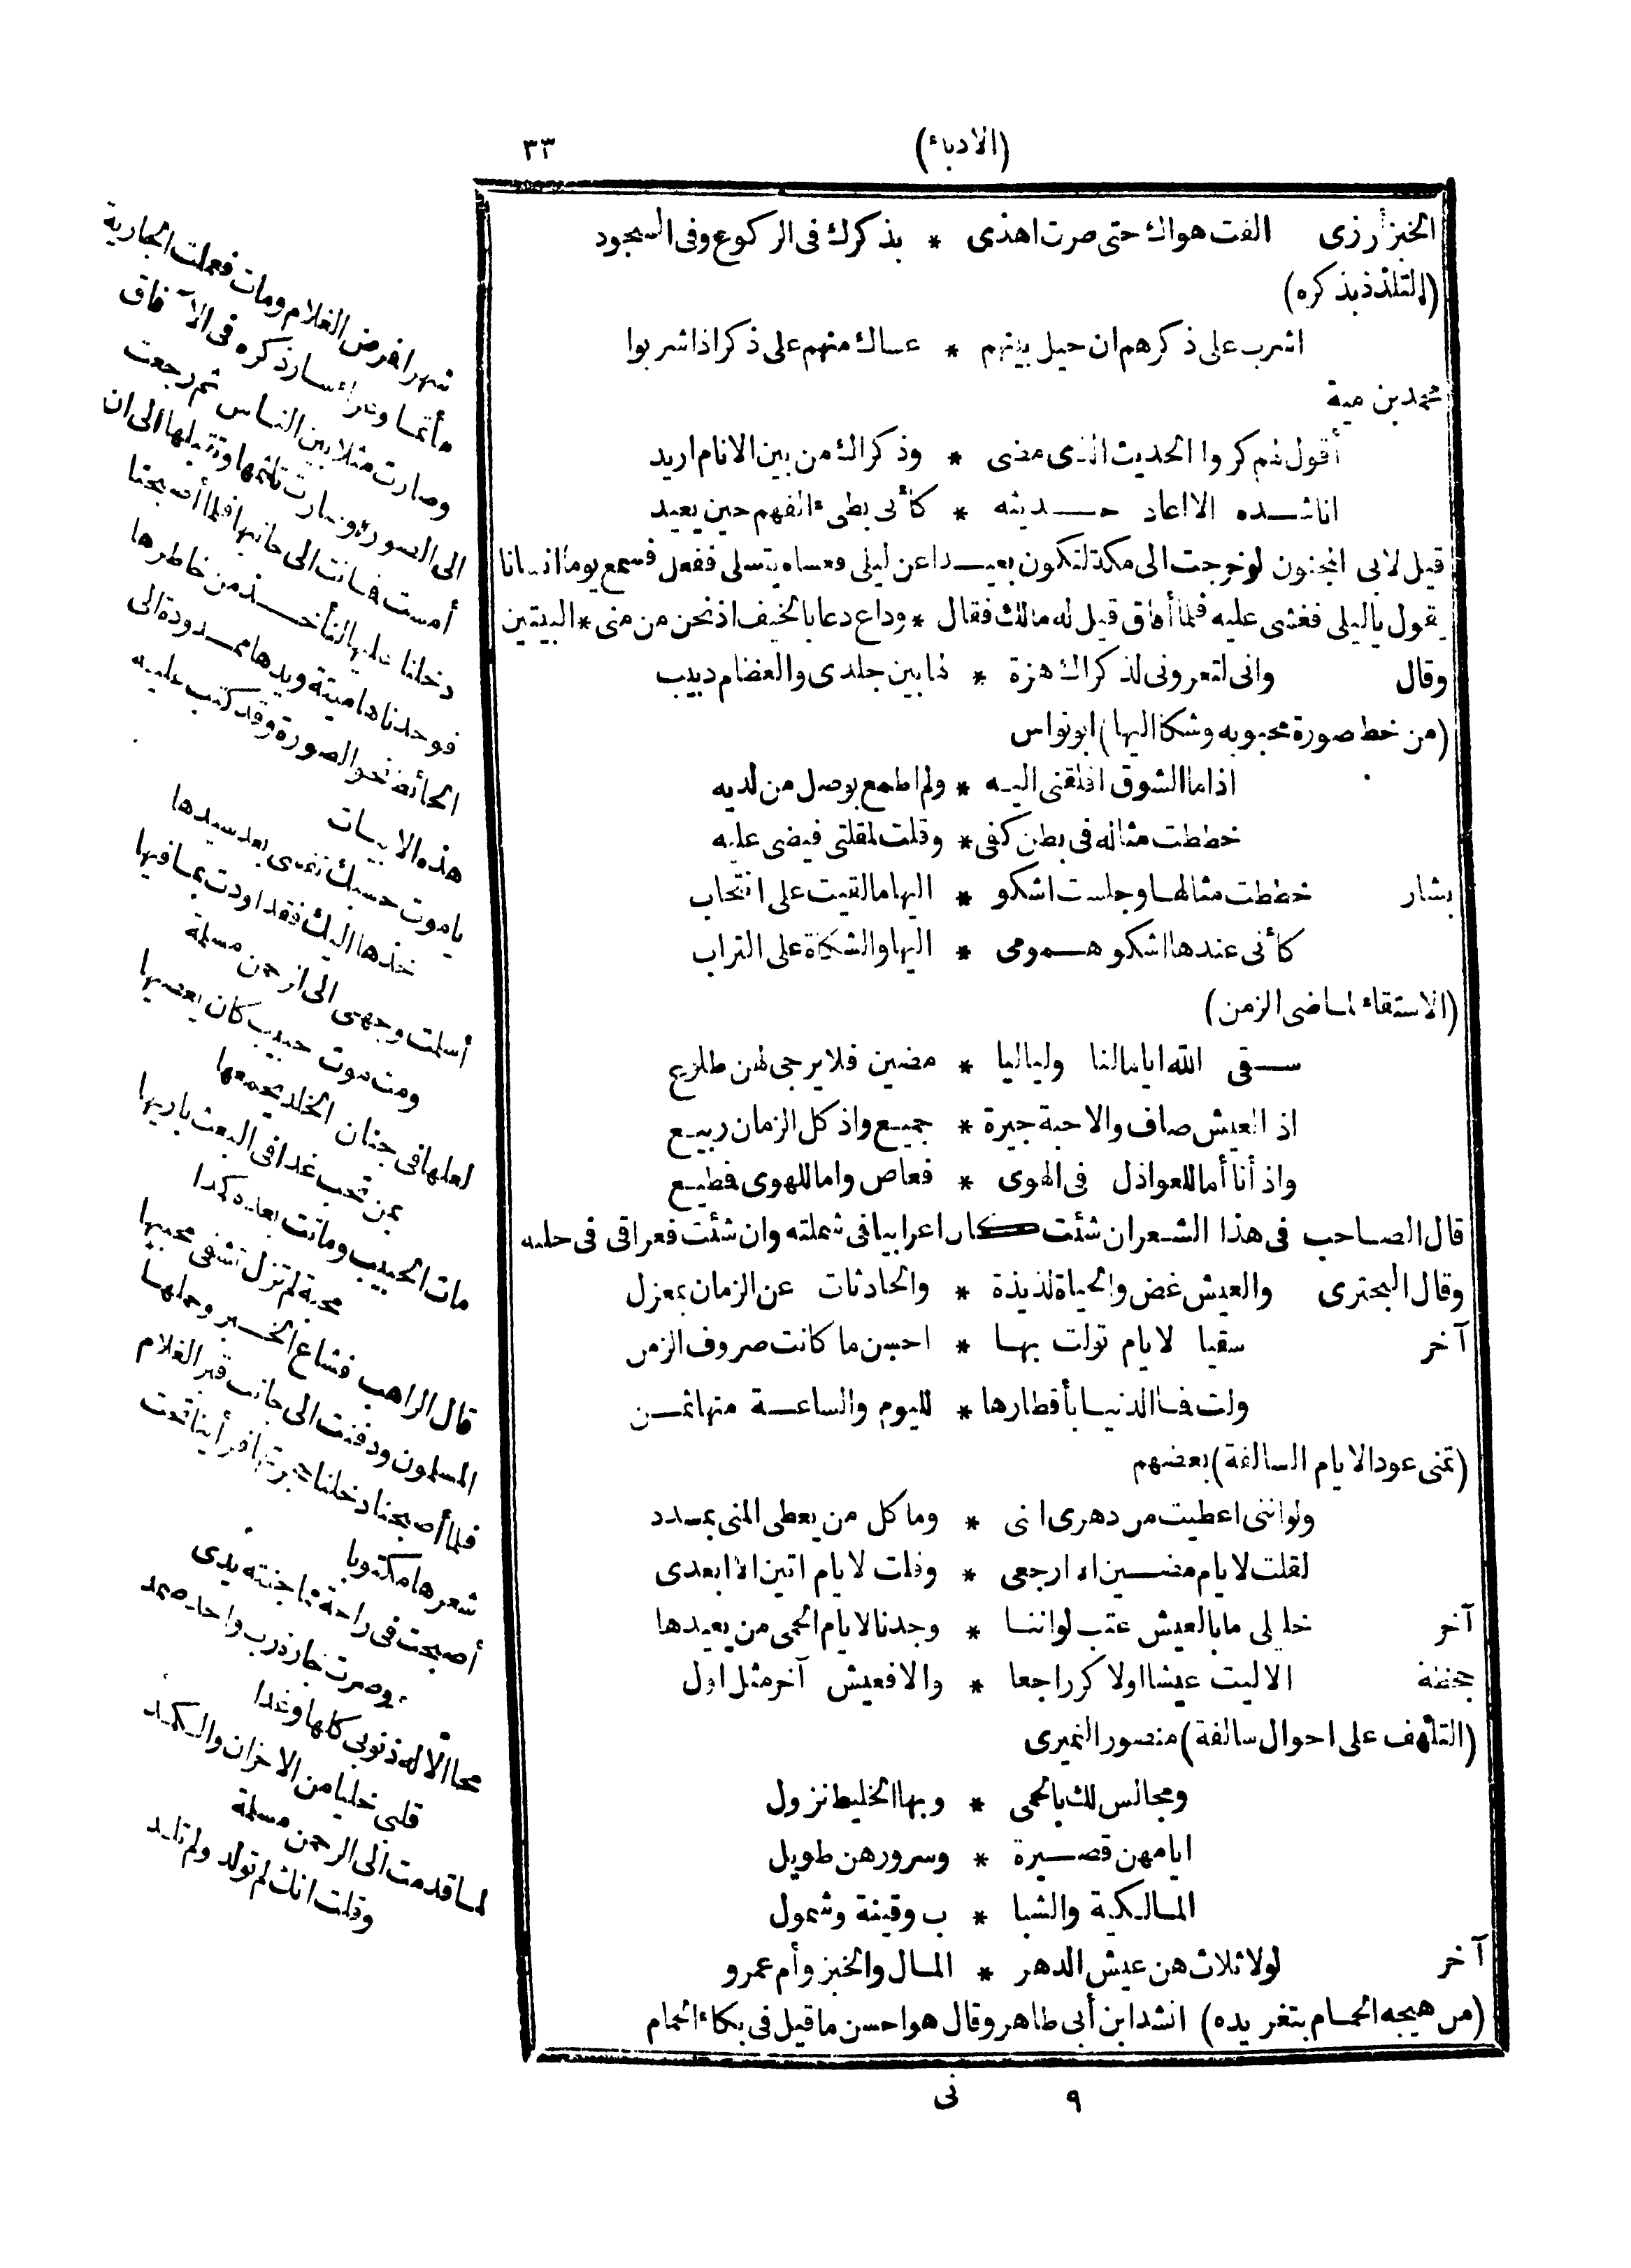 (الادباء) ٣٣
الخبزأرزى الفت هواك حتى صرت اهذى * بذكرك فى الركوع وفى السجود
(التلذذ بذكره)
اشرب على ذكرهم ان حيل بينهم * عساك منهم على ذكر اذا شربوا
محمد بن مية
أقول لهم كروا الحديث الذى مضى * وذكراك من بين الانام اريد
اناشده الا اعاد حديثه * كأنى بطىء الفهم حين يعيد
قيل لابى المجنون لو خرجت الى مكة لتكون بعيدا عن ليلى وعساه يتسلى ففعل فسمع يوما انسانا
يقول ياليلى فغشى عليه فلما أفاق قيل له مالك فقال * وداع دعا بالخيف اذ نحن من منى * البيتين
وقال وانى لتعرونى لذكراك هزة * لها بين جلدى والعظام دبيب
(من خط صورة محبوبه وشكا اليها) ابونواس
اذا ما الشوق اقلقنى اليه * ولم اطمع بوصل من لديه
خططت مثاله فى بطن كفى * وقلت لمقلتى فيضى عليه
بشار خططت مثالها وجلست اشكو * اليها ما لقيت على انتحاب
كأنى عندها اشكو همومى * اليها والشكاة على التراب
(الاستقاء لماضى الزمن)
سقى الله اياما لنا ولياليا * مضين فلا يرجى لهن طلوع
اذ العيش صاف والاحبة جيرة * جميع واذ كل الزمان ربيع
واذ أنا أما للعواذل فى الهوى * فعاص واما للهوى فطيع
قال الصاحب فى هذا الشعر ان شئت كان اعرابيا فى شملته وان شئت فعراقى فى حلته
وقال البحترى والعيش غض والحياة لذيذة * والحادثات عن الزمان بمعزل
آخر سقيا لايام تولت بها * احسن ما كانت صروف الزمن
ولت فما الدنيا بأقطارها * لليوم والساعة منها ثمن
(تمنى عود الايام السالفة) بعضهم
ولو اننى اعطيت من دهرى انى * وما كل من يعطى المنى بمسدد
لقلت لايام مضين الا ارجعى * وقلت لايام اتين الا ابعدى
آخر خليلى ما بالعيش عتب لو اننا * وجدنا لايام الحمى من يعيدها
جحظة الا ليت عيشا اولا كر راجعا * والا فعيش آخر مثل اول
(التلهف على احوال سالفة) منصور النميرى
ومجالس لك بالحمى * وبها الخليط نزول
ايامهن قصيرة * وسرورهن طويل
المالكية والشبا * ب وقينة وشمول
آخر لولا ثلاث هن عيش الدهر * المال والخبز وأم عمرو
(من هيجه الحمام بتغريده) انشد ابن أبى طاهر وقال هو احسن ما قيل فى بكاء الحمام
٩ نى
شهرا فمرض الغلام ومات فعملت الجارية
مأتما وعزاء سار ذكره فى الآفاق
وصارت مثلا بين الناس ثم رجعت
الى الصورة وصارت تلثمها وتقبلها الى ان
أمست فماتت الى جانبها فلما أصبحنا
دخلنا عليها لنأخذ من خاطرها
فوجدناها ميتة ويدها ممدودة الى
الحائط نحو الصورة وقد كتب عليه
هذه الابيات
ياموت حسبك نفسى بعد سيدها
خذها اليك فقد اودت بما فيها
أسلمت وجهى الى الرحمن مسلمة
ومت موت حبيب كان يعصيها
لعلها فى جنان الخلد يجمعها
بمن تحب غدا فى البعث باريها
مات الحبيب وماتت بعده كمدا
محبة لم تزل تشفى محبيها
قال الراهب فشاع الخبر وحملها
المسلمون ودفنت الى جانب قبر الغلام
فلما أصبحنا دخلنا حجرتها فرأينا تحت
شعرها مكتوبا
أصبحت فى راحة مما جنته يدى
وصرت جارة رب واحد صمد
محا الاله ذنوبى كلها وغدا
قلبى خليا من الاحزان والكمد
لما قدمت الى الرحمن مسلمة
وقلت انك لم تولد ولم تلد